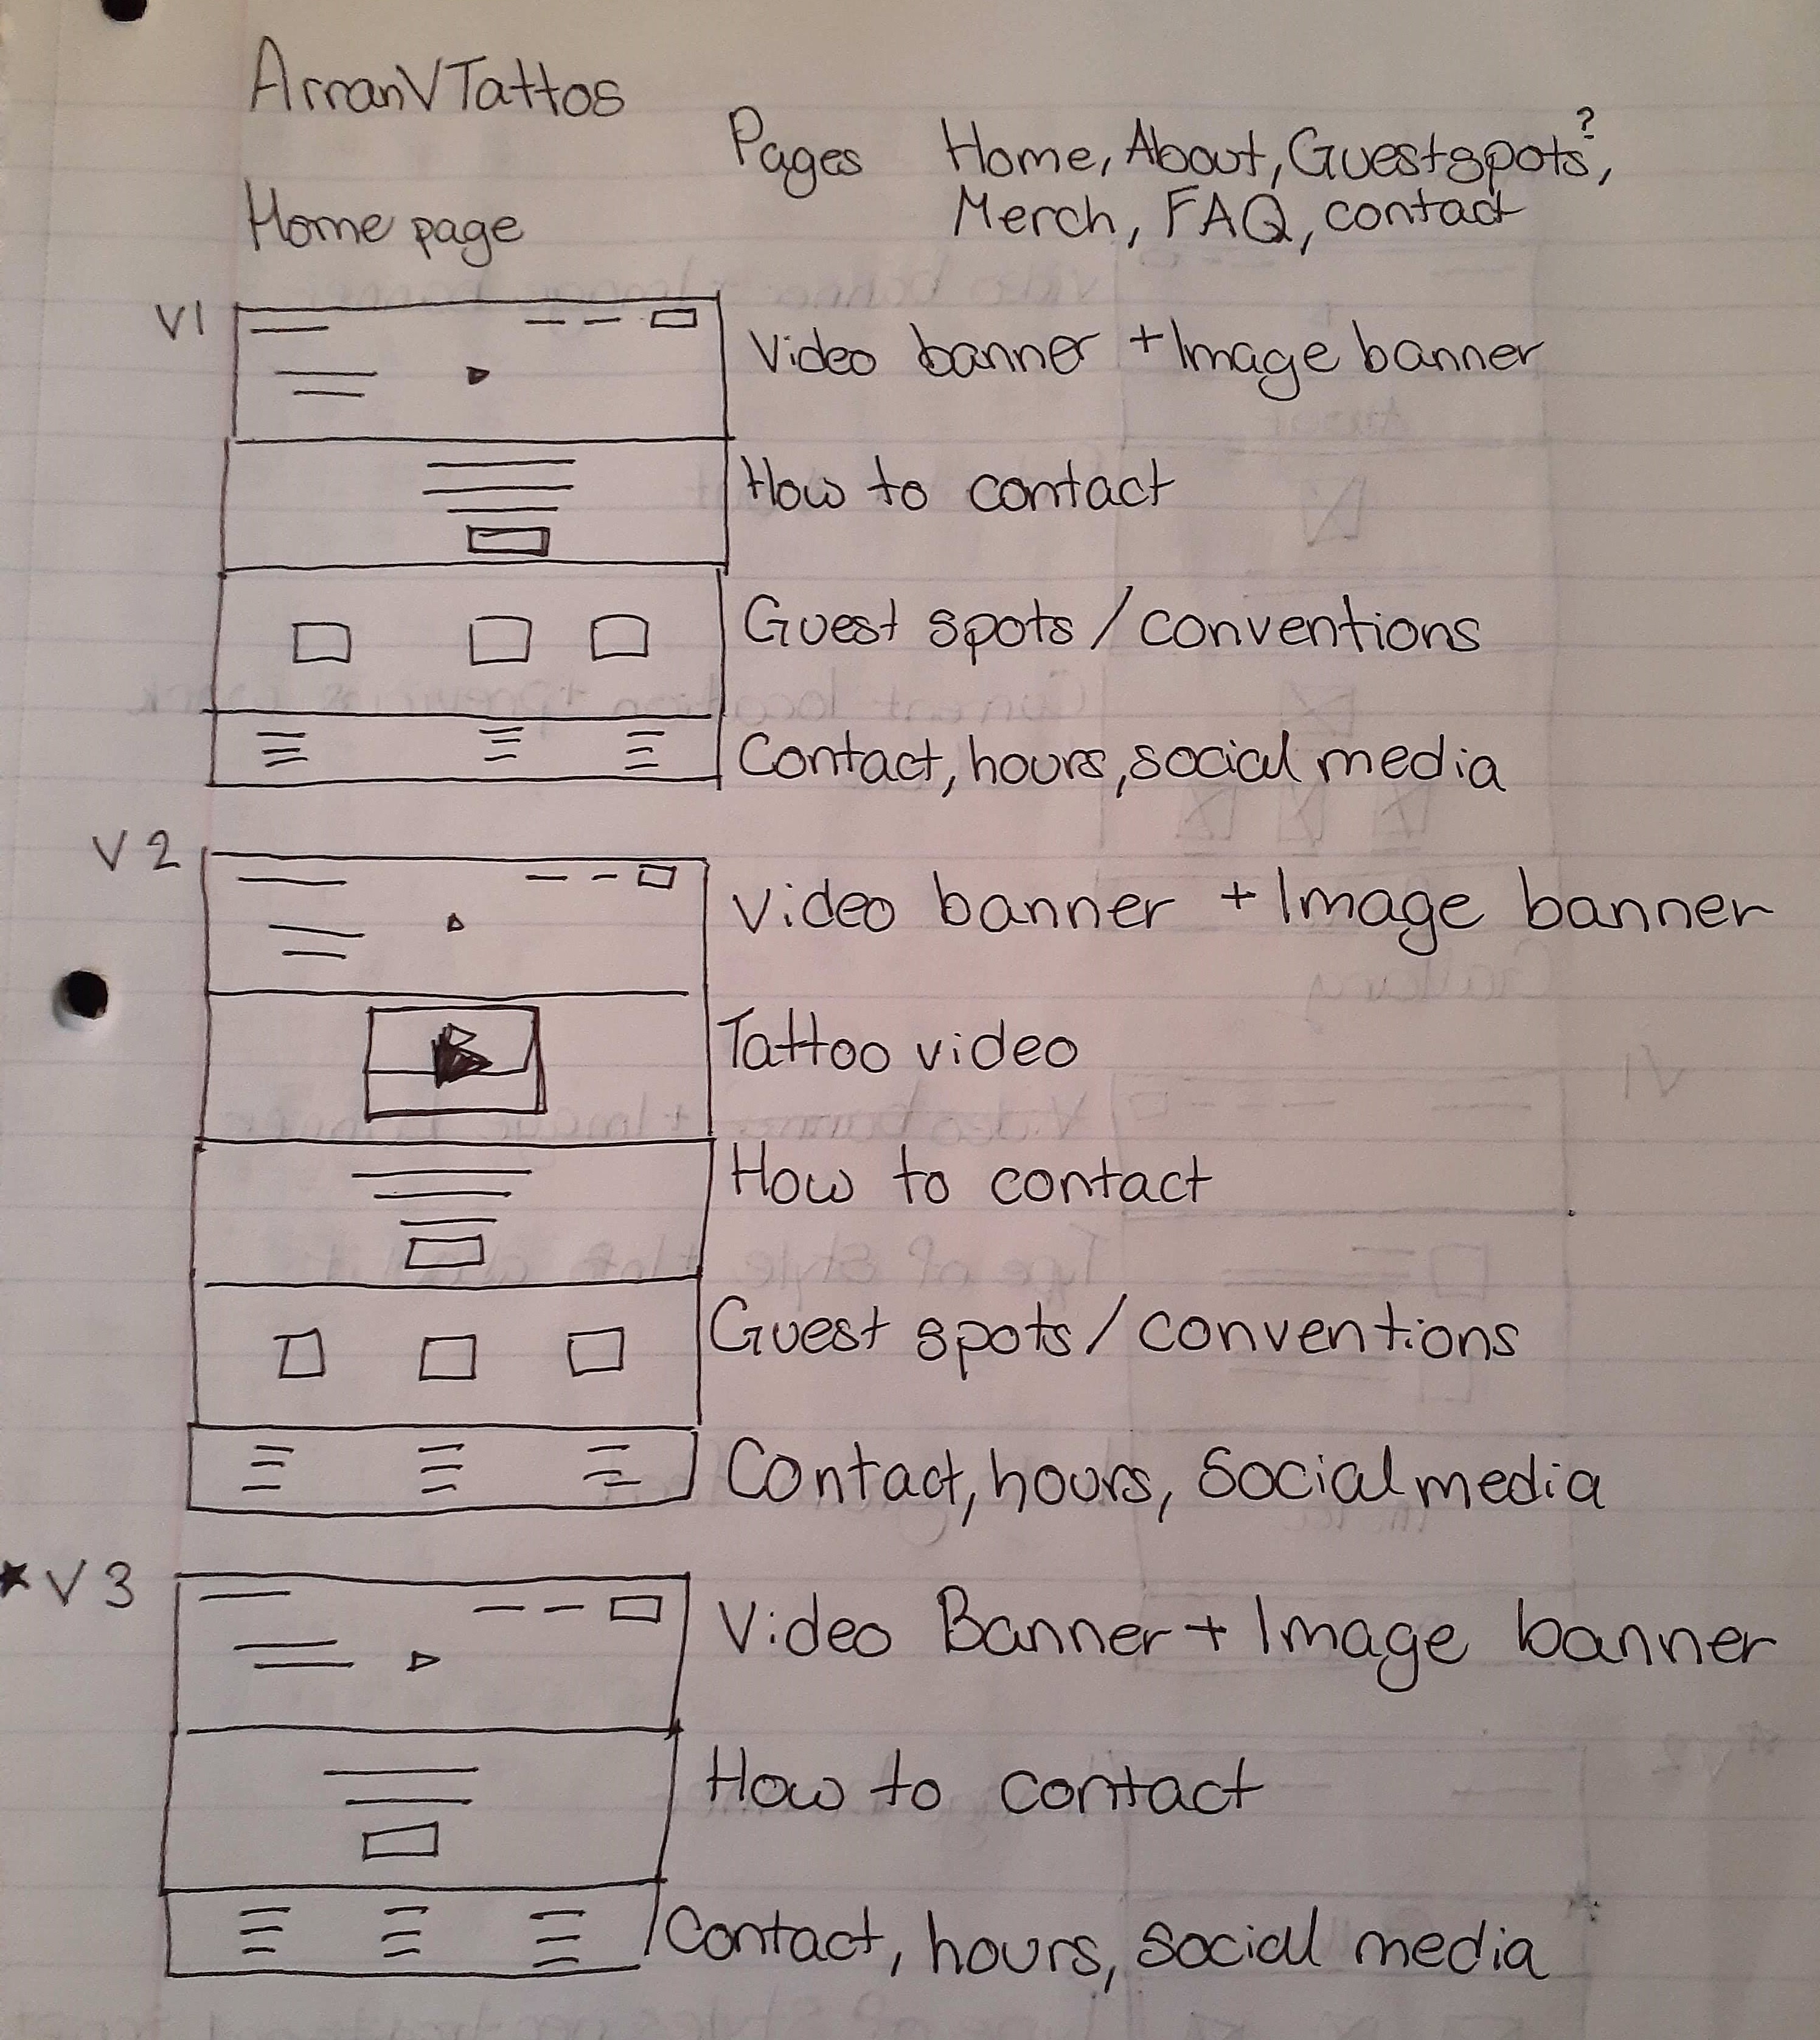 ArranVTattos
Pages Home, About, Guestspots?,
Merch, FAQ, contact
Home page
V1
Video banner + Image banner
How to contact
Guest spots / conventions
Contact, hours, social media
V2
Video banner + Image banner
Tattoo video
How to contact
Guest spots / conventions
Contact, hours, social media
★ V3
Video Banner + Image banner
How to contact
Contact, hours, social media